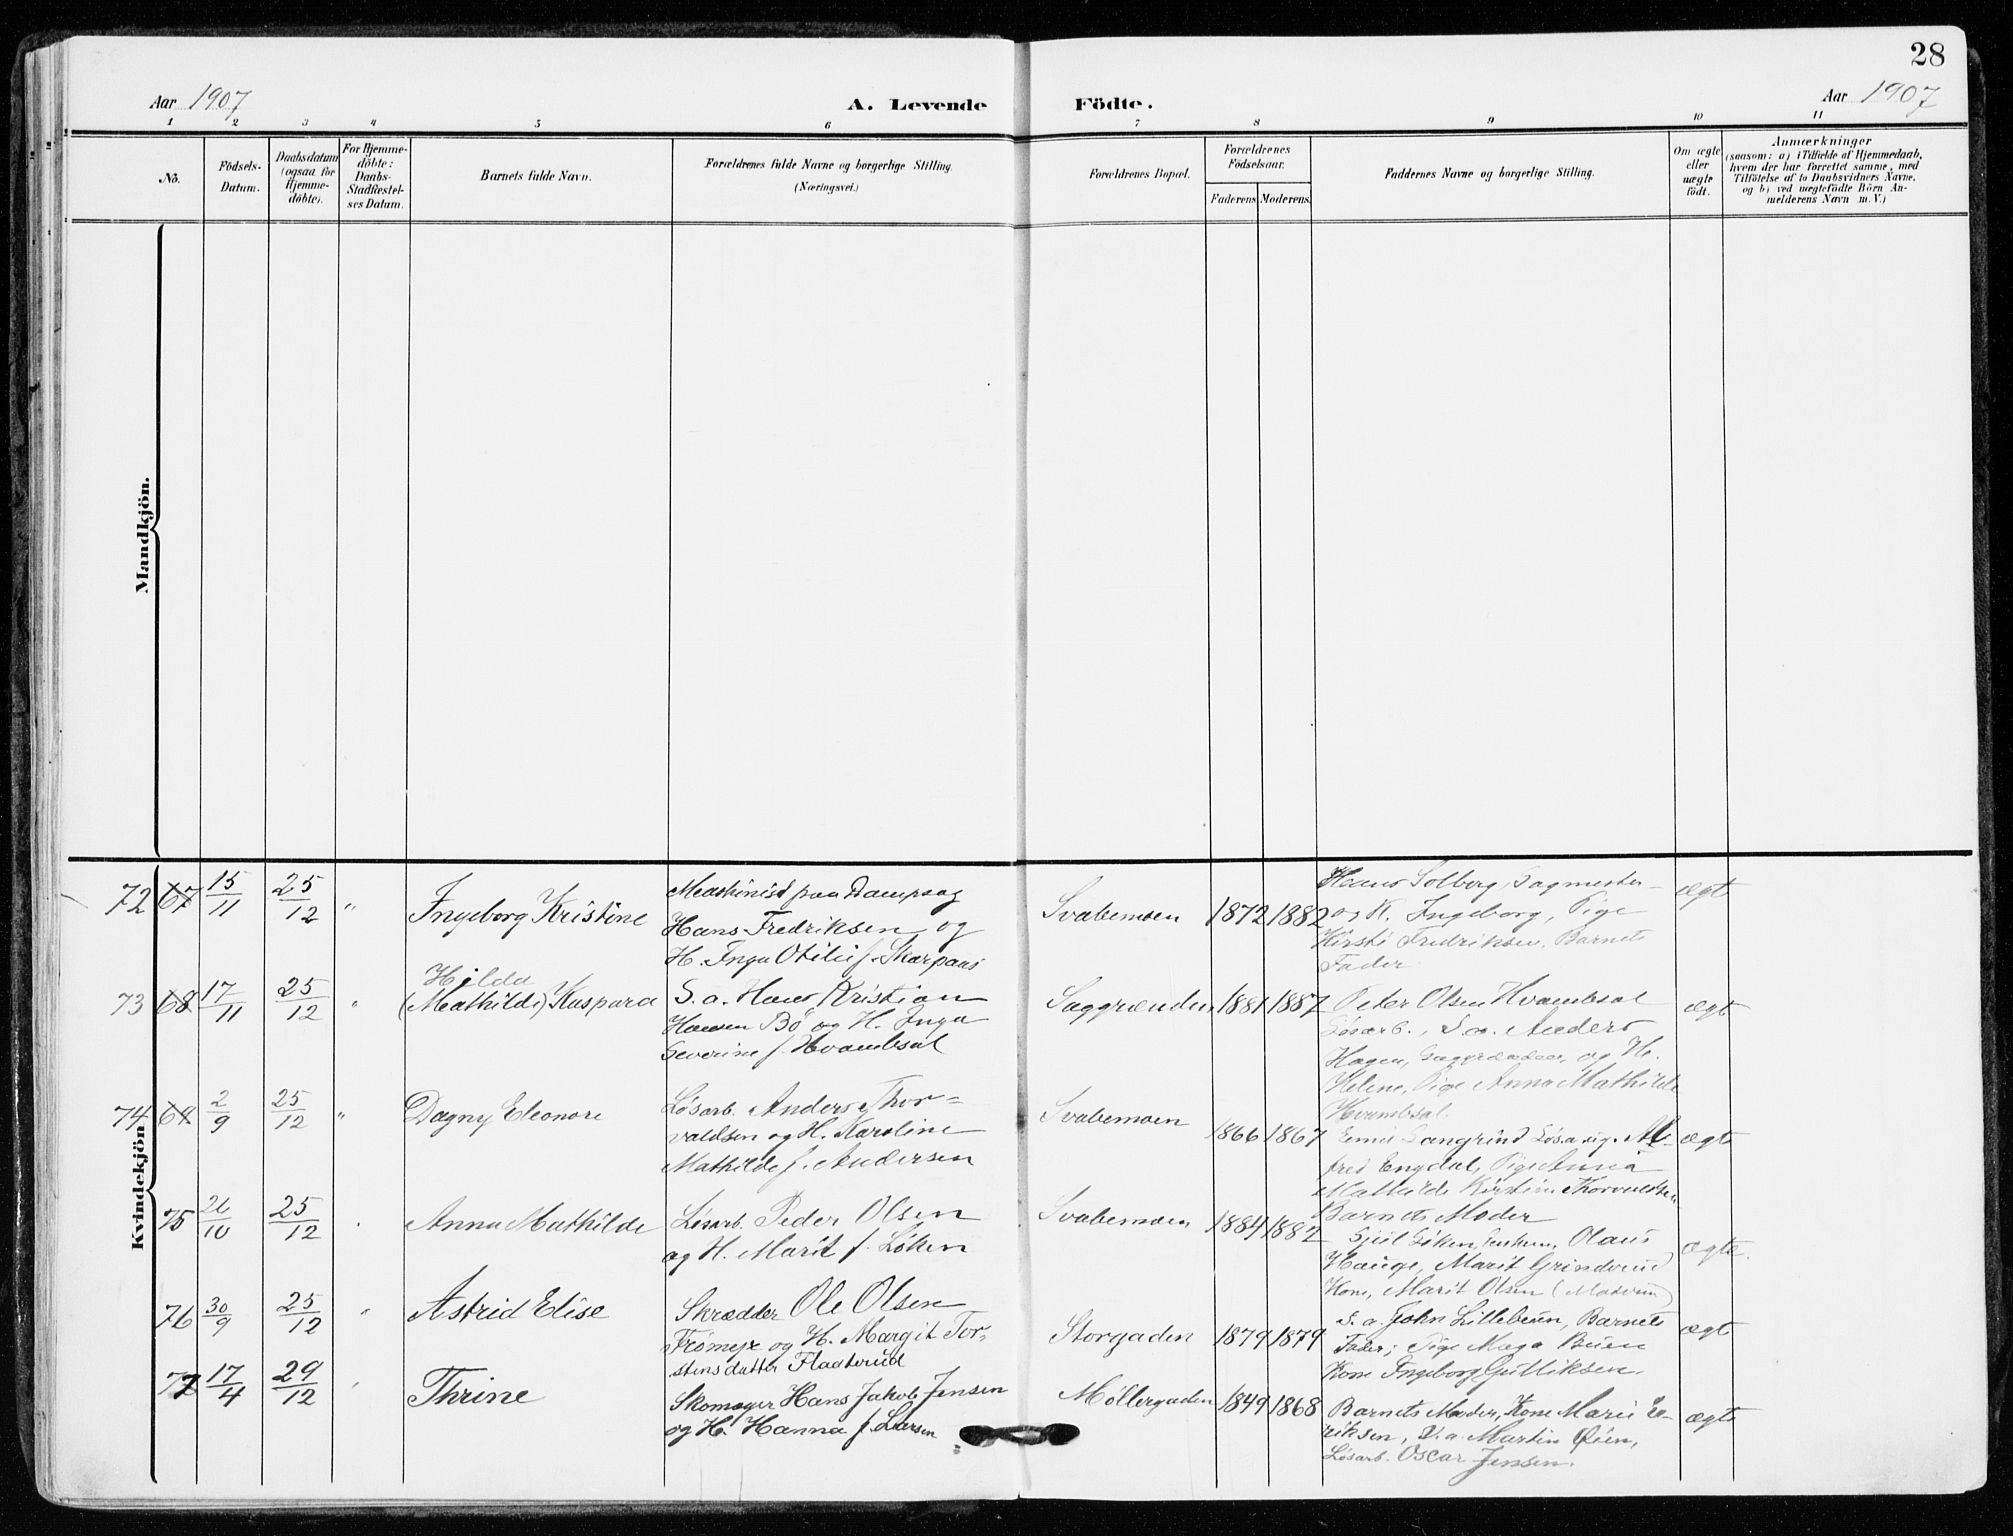 28
Aar 1907 A. Levende Födte. Aar 1907
1 2 3 4 5 6 7 8 9 10 11
No.
Födsels-
Datum.
Daabsdatum
(ogsaa for
Hjemme-
döbte).
For Hjemme-
döbte:
Daabs-
Stadfæstel-
ses Datum.
Barnets fulde Navn.
Forældrenes fulde Navne og borgerlige Stilling.
(Næringsvei.)
Forældrenes Bopæl.
Forældrenes
Födselsaar.
Faderens. Moderens.
Faddernes Navne og borgerlige Stilling.
Om ægte
eller
uægte
födt.
Anmærkninger
(saasom: a) i Tilfælde af Hjemmedaab,
hvem der har forrettet samme, med
Tilföielse af to Daabsvidners Navne,
og b) ved uægtefödte Börn An-
melderens Navn m. V.)
Mandkjön.
Kvindekjön
72 67 15/11 25/12 " Ingeborg Kristine
Maskinist paa Dampsag
Hans Fredriksen og
H. Inga Otilie f. Skarpaas
Svabemoen 1872 1882
Hans Solberg, Sagmester
og K. Ingeborg, Pige
Kirsti Fredriksen, Barnets
Fader
ægt
73 68 17/11 25/12 "
Hilda
(Mathilde) Kaspara
S. a. Hans Kristian
Hansen Bö og H. Inga
Severine f. Hvambsal
Saggrænden 1881 1887
Peter Olsen Hvambsal
Løsarb., S. a. Anders
Hagen, Saggrænden, og H.
Helene, Pige Anna Mathilde
Hvambsal.
ægt
74 69 2/9 25/12 " Dagny Eleonore
Løsarb. Anders Thor-
valdsen og H. Karoline
Mathilde f. Andersen
Svabemoen 1866 1867
Emil Langrind Løsa og Al-
fred Engdal, Pige Anna
Mathilde Kirstine Thorvaldsen
Barnets Moder
ægte
75 26/10 25/12 Anna Mathilde
Løsarb. Peder Olsen
og H. Marit f. Løken
Svabemoen 1884 1882
Løken, Olaus
Hauge, Marit Grindvrud
Kone, Marit Olsen (Moderen)
ægte.
76 30/9 25/12 " Astrid Elise
Skrædder Ole Olsen
Frömyr og H. Margit Tor-
stensdatter Flaaterud
Storgaden 1879 1879
S. a. John Lillebuen, Barnets
Fader; Pige Maga Buen
Kone Ingeborg Gulliksen.
ægt
77 17/4 29/12 Thrine
Skomager Hans Jakob Jensen
og H. Hanna f. Larsen
Møllergaden 1849 1868
Barnets Moder, Kone Marie Ee-
riksen, S. a. Martin Øien,
Løsarb. Oscar Jensen.
ægte